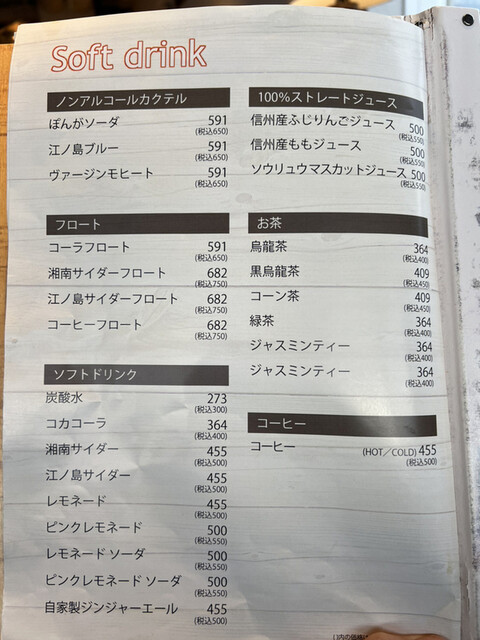 Soft drink
ノンアルコールカクテル
ぽんがソーダ 591
(税込650)
江ノ島ブルー 591
(税込650)
ヴァージンモヒート 591
(税込650)
フロート
コーラフロート 591
(税込650)
湘南サイダーフロート 682
(税込750)
江ノ島サイダーフロート 682
(税込750)
コーヒーフロート 682
(税込750)
ソフトドリンク
炭酸水 273
(税込300)
コカコーラ 364
(税込400)
湘南サイダー 455
(税込500)
江ノ島サイダー 455
(税込500)
レモネード 455
(税込500)
ピンクレモネード 500
(税込550)
レモネード ソーダ 500
(税込550)
ピンクレモネード ソーダ 500
(税込550)
自家製ジンジャーエール 455
(税込500)
100%ストレートジュース
信州産ふじりんごジュース 500
(税込550)
信州産ももジュース 500
(税込550)
ソウリュウマスカットジュース 500
(税込550)
お茶
烏龍茶 364
(税込400)
黒烏龍茶 409
(税込450)
コーン茶 409
(税込450)
緑茶 364
(税込400)
ジャスミンティー 364
(税込400)
ジャスミンティー 364
(税込400)
コーヒー
コーヒー (HOT/COLD) 455
(税込500)